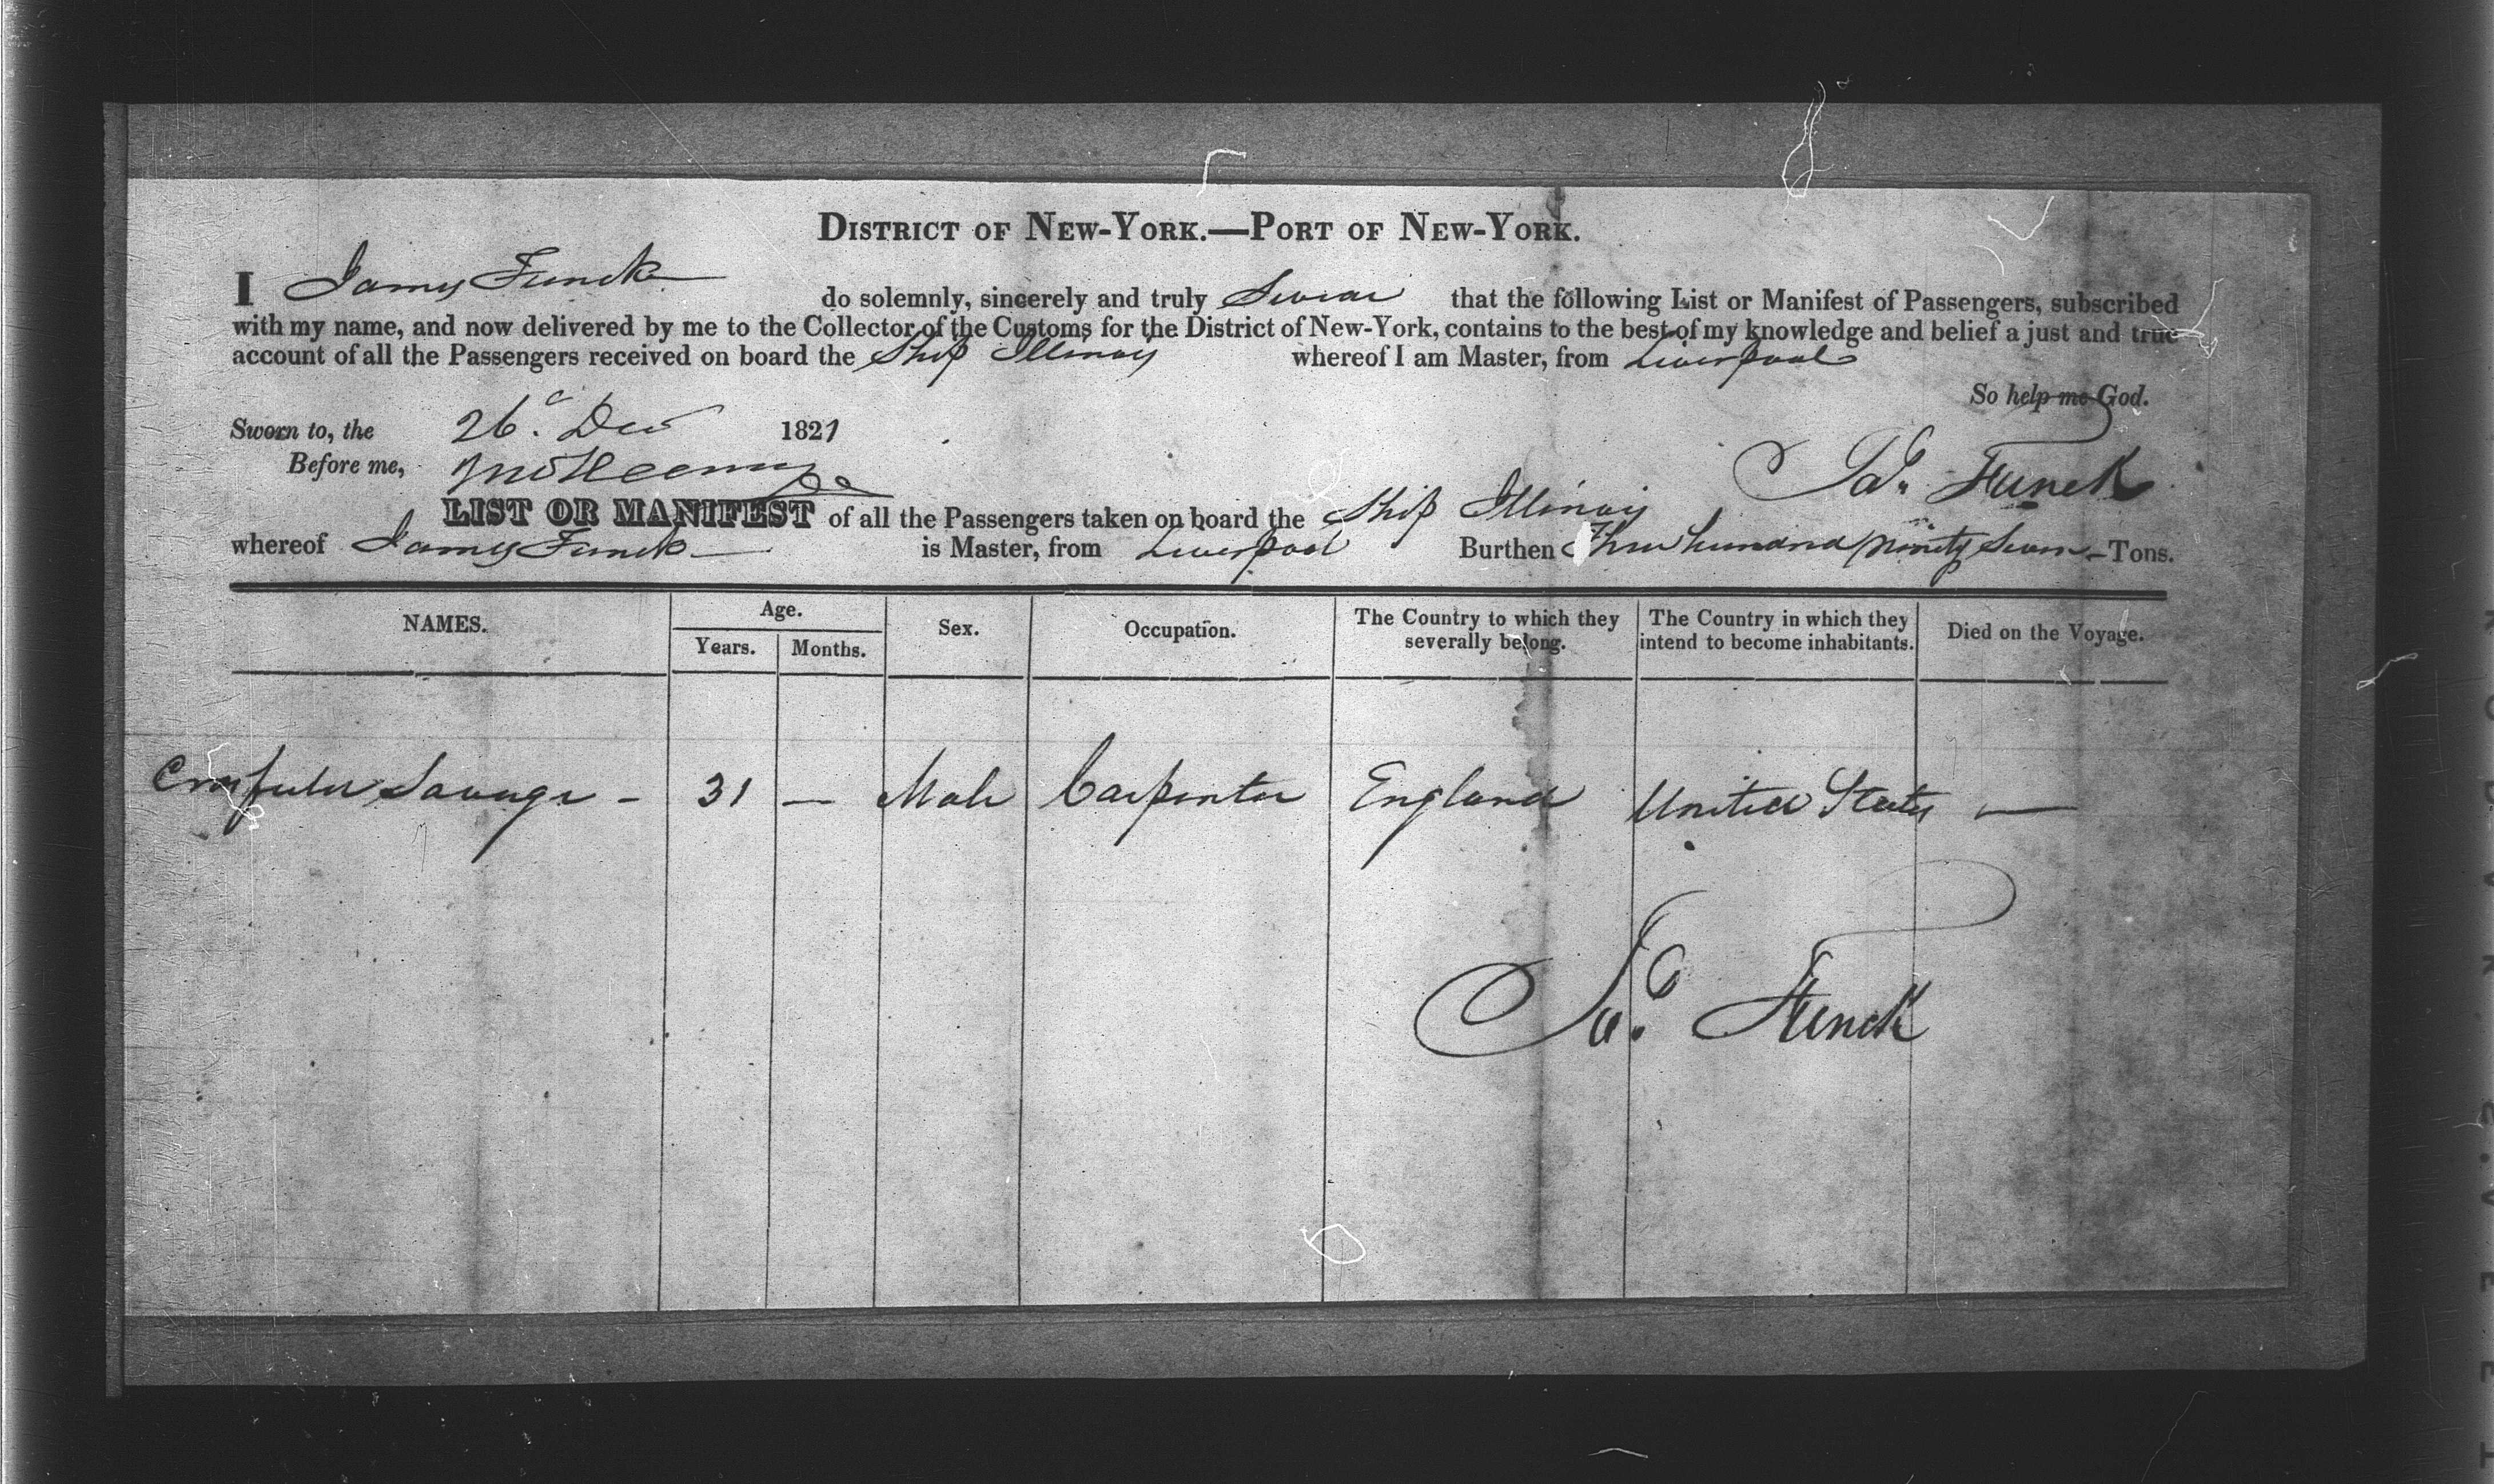 DISTRICT OF NEW-YORK.—PORT OF NEW-YORK.
I James Funck do solemnly, sincerely and truly Swear that the following List or Manifest of Passengers, subscribed
with my name, and now delivered by me to the Collector of the Customs for the District of New-York, contains to the best of my knowledge and belief a just and true
account of all the Passengers received on board the Ship Illinois whereof I am Master, from Liverpool
So help me God.
Sworn to, the 26 Dec 1821
Before me,
Jas. Funck
LIST OR MANIFEST of all the Passengers taken on board the Ship Illinois
whereof James Funck is Master, from Liverpool Burthen Three hundred ninety Seven Tons.
NAMES. Age. Years. Months. Sex. Occupation. The Country to which they severally belong. The Country in which they intend to become inhabitants. Died on the Voyage.
Savage - 31 — Male Carpenter England United States —
Jas. Funck